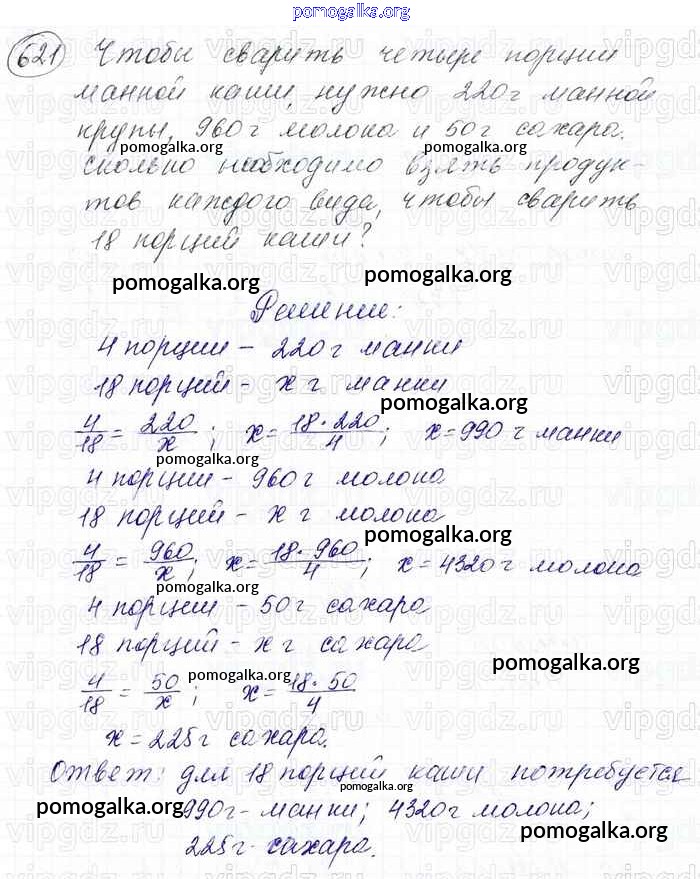 pomogalka.org
621 Чтобы сварить четыре порции
манной каши, нужно 220 г манной
крупы, 960 г молока и 50 г сахара.
pomogalka.org
Сколько необходимо взять продук-
тов каждого вида, чтобы сварить
18 порций каши?
pomogalka.org pomogalka.org
Решение:
4 порции – 220 г манки
18 порций – x г манки
pomogalka.org
4/18 = 220/x ; x = 18·220/4 ; x = 990 г манки
pomogalka.org
4 порции – 960 г молока
18 порций – x г молока
pomogalka.org
4/18 = 960/x ; x = 18·960/4 ; x = 4320 г молока
pomogalka.org
4 порции – 50 г сахара
18 порций – x г сахара
pomogalka.org
4/18 = 50/x ; x = 18·50/4
pomogalka.org
x = 225 г сахара.
Ответ: для 18 порций каши потребуется
pomogalka.org
990 г – манки; 4320 г молока;
pomogalka.org
225 г – сахара.